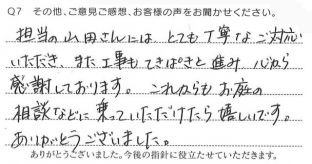 Q7 その他、ご意見ご感想、お客様の声をお聞かせください。
担当の山田さんには、とても丁寧なご対応
いただき、また工事もてきぱきと進み 心から
感謝しております。 これからもお庭の
相談などに乗っていただけたら嬉しいです。
ありがとうございました。
ありがとうございました。今後の指針に役立たせていただきます。